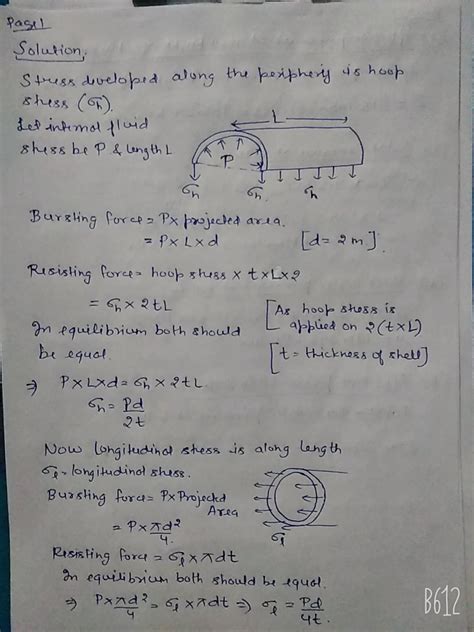 Page 1
Solution.
Stress developed along the periphery is hoop
stress (σh).
Let internal fluid
stress be P & length L
L
P
σh σh σh
Bursting force = P x projected area.
= P x L x d [d = 2 m].
Resisting force = hoop stress x t x L x 2
= σh x 2tL [As hoop stress is
applied on 2(t x L)
In equilibrium both should
be equal. [t = thickness of shell]
⇒ P x L x d = σh x 2tL.
σh = Pd/2t
Now longitudinal stress is along length
σl = longitudinal stress.
Bursting force = P x Projected
Area
= P x πd²/4.
σl
Resisting force = σl x πdt
In equilibrium both should be equal.
⇒ P x πd²/4 = σl x πdt ⇒ σl = Pd/4t.
B612